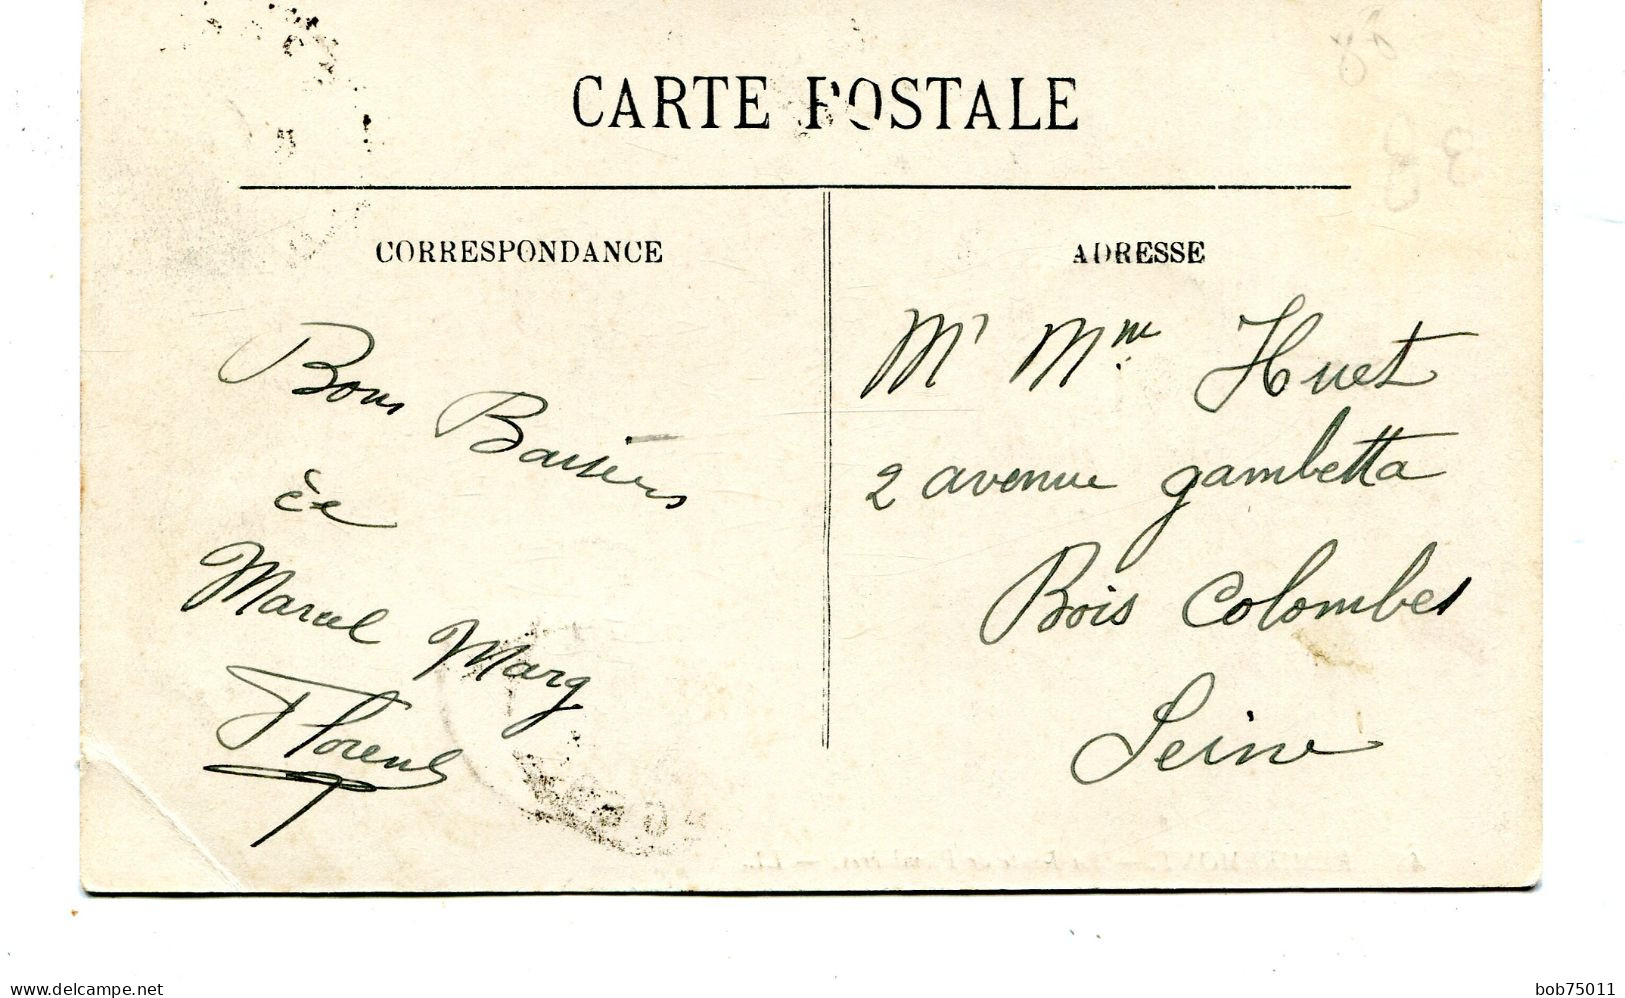 CARTE POSTALE
CORRESPONDANCE
Bons Baisers
de
Marcel Marg
Florent
ADRESSE
Mr Mme Huet
2 avenue gambetta
Bois Colombes
Seine
www.delcampe.net
bob75011